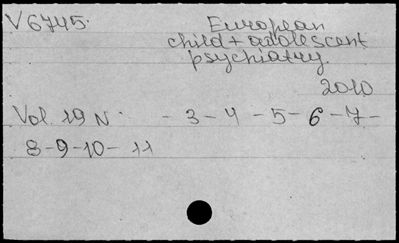 V 6745.
European
child + adolescent
psychiatry.
2010
Vol. 19 N. - 3 - 4 - 5 - 6 - 7 -
8 - 9 - 10 - 11